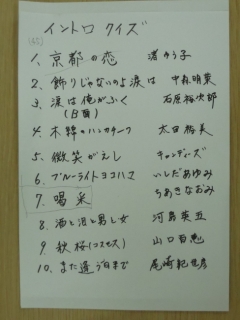 イントロ クイズ
1. 京都の恋 渚ゆう子
2. 飾りじゃないのよ涙は 中森明菜
3. 涙は俺がふく 石原裕次郎
4. 木綿のハンカチーフ 太田裕美
5. 微笑がえし キャンディーズ
6. ブルーライトヨコハマ いしだあゆみ
7. 喝采 ちあきなおみ
8. 酒と泪と男と女 河島英五
9. 秋桜(コスモス) 山口百恵
10. また逢う日まで 尾崎紀世彦